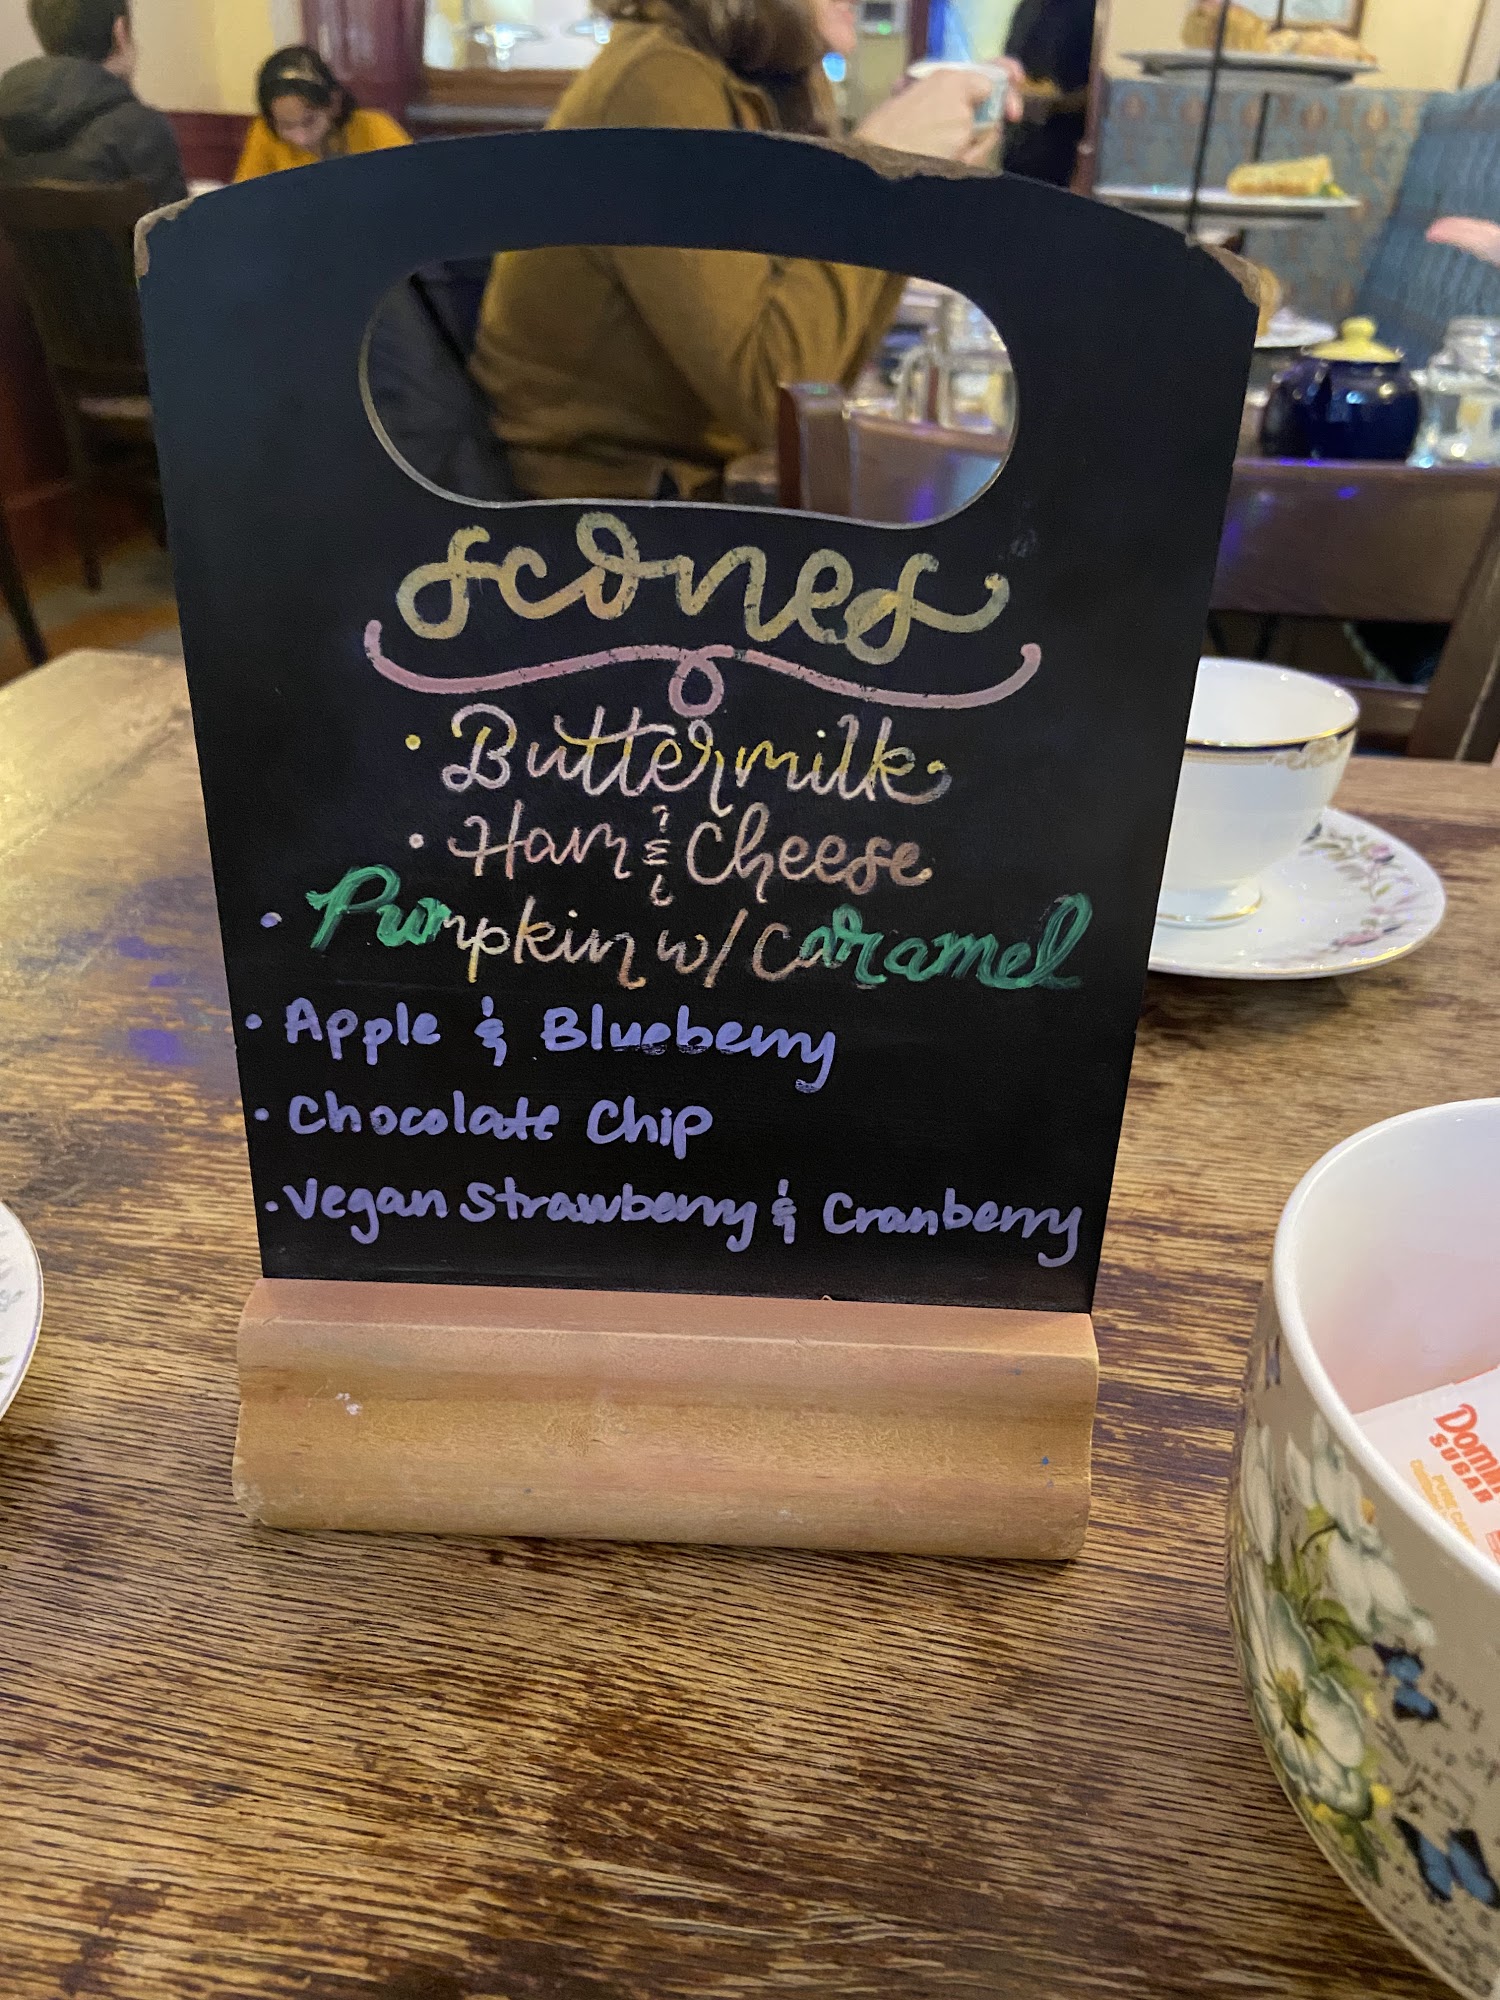 scones
• Buttermilk
• Ham & Cheese
• Pumpkin w/ Caramel
• Apple & Blueberry
• Chocolate Chip
• Vegan Strawberry & Cranberry
SUGAR